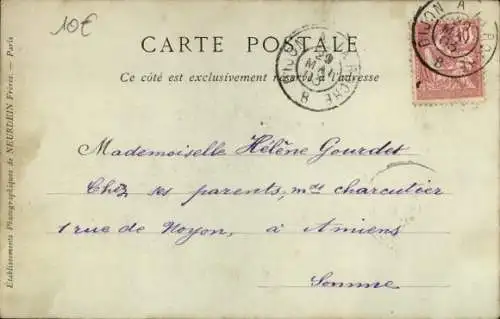 10€
CARTE POSTALE
Ce côté est exclusivement réservé à l'adresse
DIJON A
MAI
03
8
DIJON A
8
10
Mademoiselle Hélène Gourdet
Chez ses parents, mds charcutier
1 rue de Noyon, à Amiens
Somme
Etablissements Photographiques de NEURDEIN Frères. — Paris